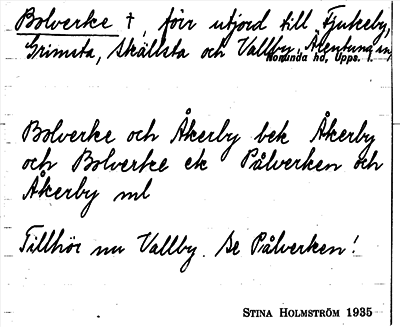 Bolverke †, förr utjord till Tjukeby,
Grimsta, Skällsta och Vallby, Ärentuna sn,
Norunda hd, Upps. l.
Bolverke och Åkerby bek Åkerby
och Bolverke ek Pålverken och
Åkerby ml
Tillhör nu Vallby. Se Pålverken!
STINA HOLMSTRÖM 1935